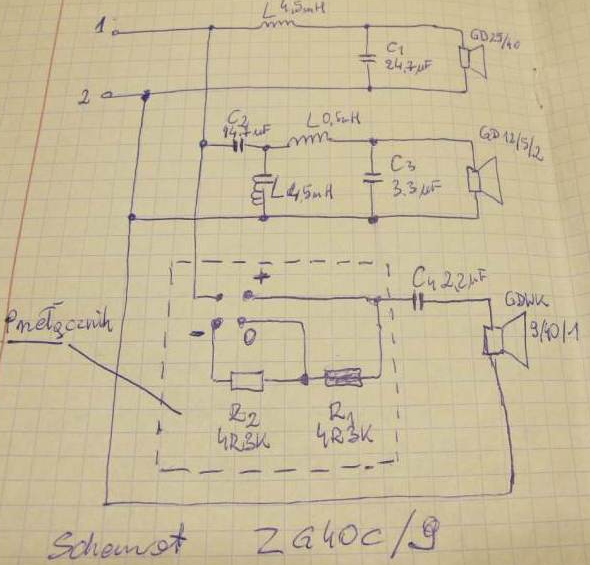 L 4,5mH
1
C1
24,7µF
GD25/40
2
C2
14,7µF
L 0,5mH
GD12/5/2
L 4,5mH
C3
3.3µF
+
C4 2,2µF
GDWK
9/40/1
Przełącznik
-
0
R2
4R3K
R1
4R3K
Schemat ZG40C/9